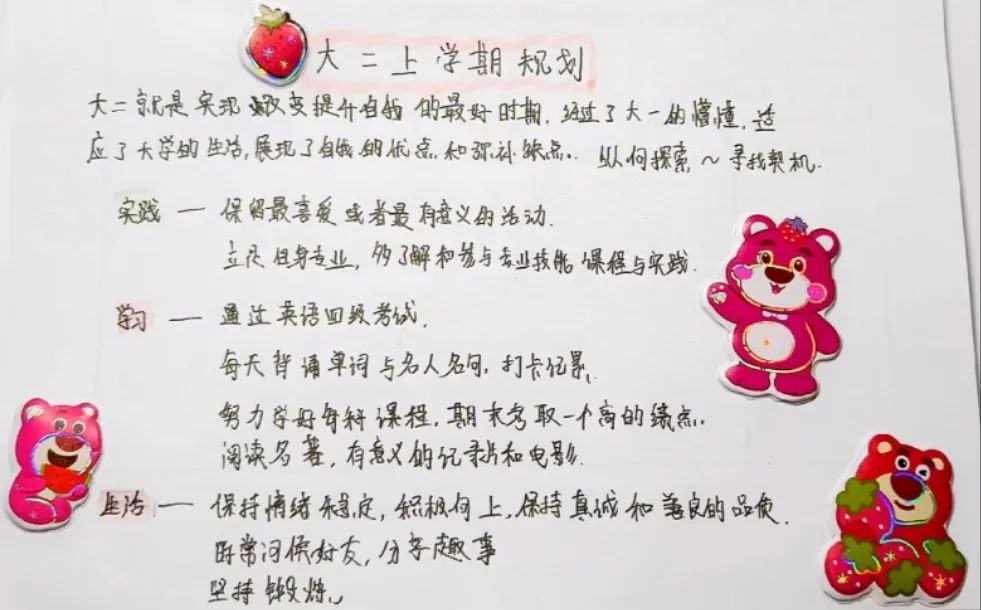 大二上学期规划
大二就是实现改变提升自我的最好时期,经过了大一的懵懂,适
应了大学的生活,展现了自我的优点和弥补缺点. 纵何探索~寻找契机.
实践 — 保留最喜爱或者最有意义的活动.
立足自身专业,多了解和参与专业技能课程与实践.
学习 — 通过英语四级考试.
每天背诵单词与名人名句,打卡记录.
努力学好每科课程,期末考取一个高的绩点.
阅读名著,有意义的记录片和电影.
生活 — 保持情绪稳定,积极向上,保持真诚和善良的品质.
时常问候好友,分享趣事
坚持锻炼.